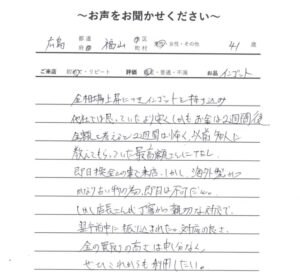 ～お声をお聞かせください～
広島 都道府県 福山 市区町村 女性・その他 41歳
ご来店 初めて・リピート 評価 満足・普通・不満 お品 インゴット
金相場上昇につきインゴットを持ち込み
他社では買っていたより安くしかもお金は2週間後
金額も考えると2週間は怖く以前知人に
教えてもらっていた
即日現金との事で来店。しかし、海外製か
即日は不可だった。
しかし店長さんが丁寧かつ親切な対応で、
翌午前中に振り込まれた。対応の良さ、
金の買取りの高さは申し分なし。
ぜひこれからも利用したい。